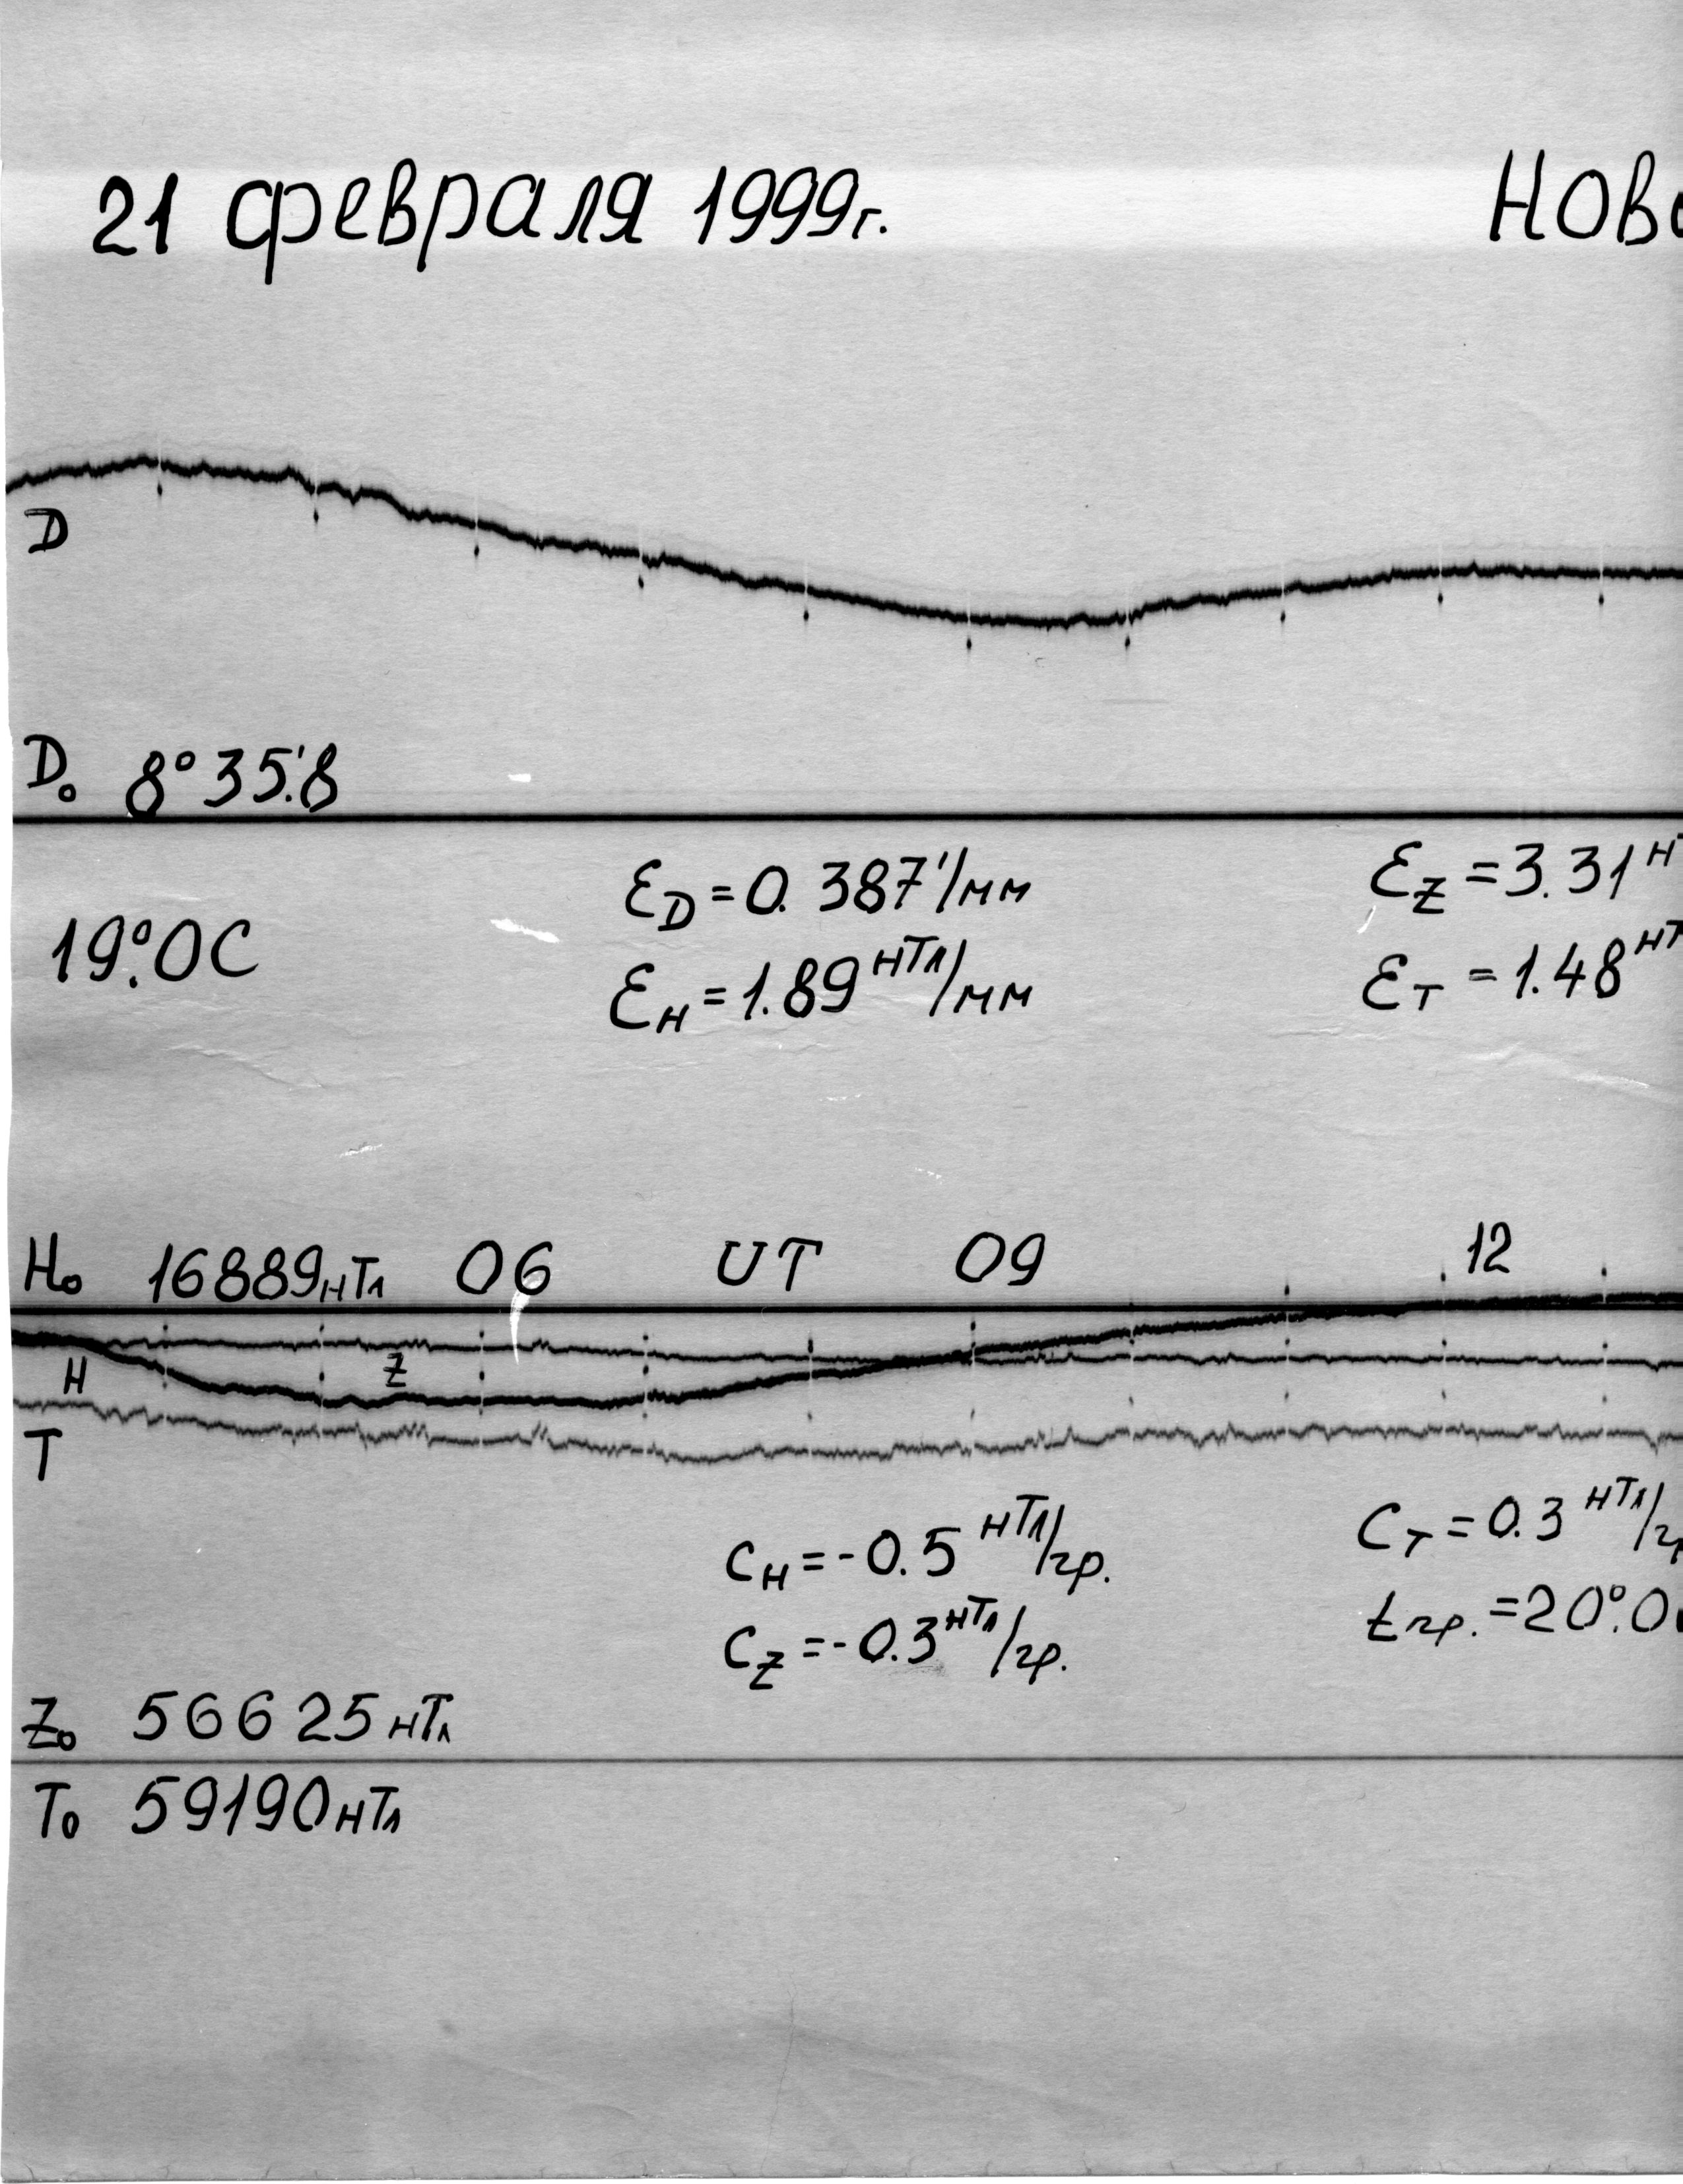 21 февраля 1999г. Ново
D
D₀ 8°35.'8
ε_D = 0.387'/мм ε_Z = 3.31 н
19.°0С
ε_H = 1.89 нТл/мм ε_T = 1.48 нТ
H₀ 16889нТл 06 UT 09 12
H Z
T
C_H = -0.5 нТл/гр. C_T = 0.3 нТл/г
C_Z = -0.3 нТл/гр. t гр. = 20.°0
Z₀ 56625 нТл
T₀ 59190 нТл